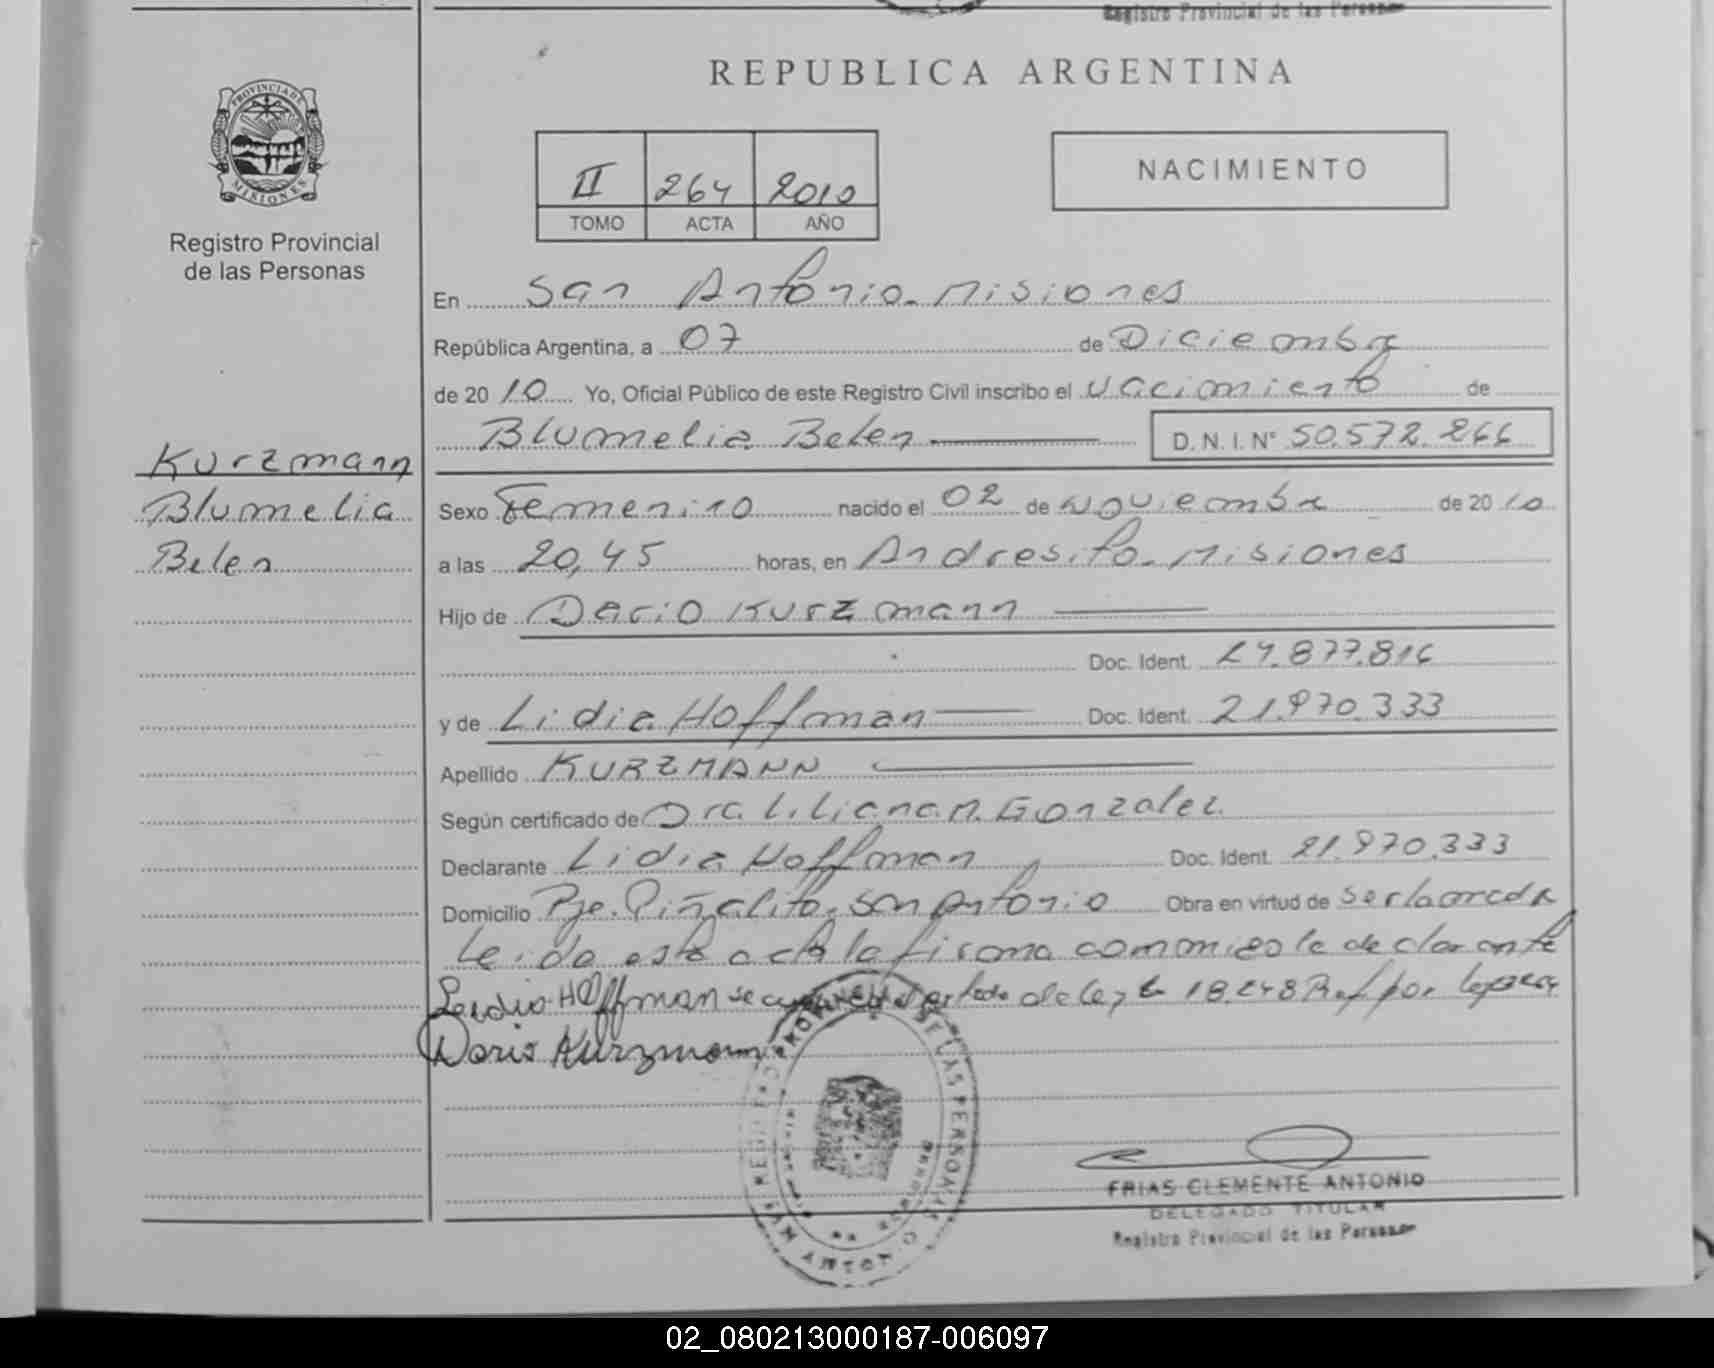 Registro Provincial de las Personas
REPUBLICA ARGENTINA
PROVINCIA DE MISIONES
Registro Provincial
de las Personas
II 264 2010
TOMO ACTA AÑO
NACIMIENTO
En San Antonio - Misiones
República Argentina, a 07 de Diciembre
de 2010 Yo, Oficial Público de este Registro Civil inscribo el Nacimiento de
Blumelia Belen D.N.I. N° 50.572.266
Kurzmann
Blumelia
Belen
Sexo Femenino nacido el 02 de Noviembre de 2010
a las 20,45 horas, en Andresito - Misiones
Hijo de Dario Kurzmann
Doc. Ident. 27.877.816
y de Lidia Hoffman Doc. Ident. 21.970.333
Apellido KURZMANN
Según certificado de Dra Liliana M. Gonzalez
Declarante Lidia Hoffman Doc. Ident. 21.970.333
Domicilio Pje. Piñalito, San Antonio Obra en virtud de ser la madre
Leida esta acta la firma conmigo la declarante
Leidia Hoffman de Ley 18.248 por
Dario Kurzmann
FRIAS CLEMENTE ANTONIO
DELEGADO TITULAR
Registro Provincial de las Personas
02_080213000187-006097